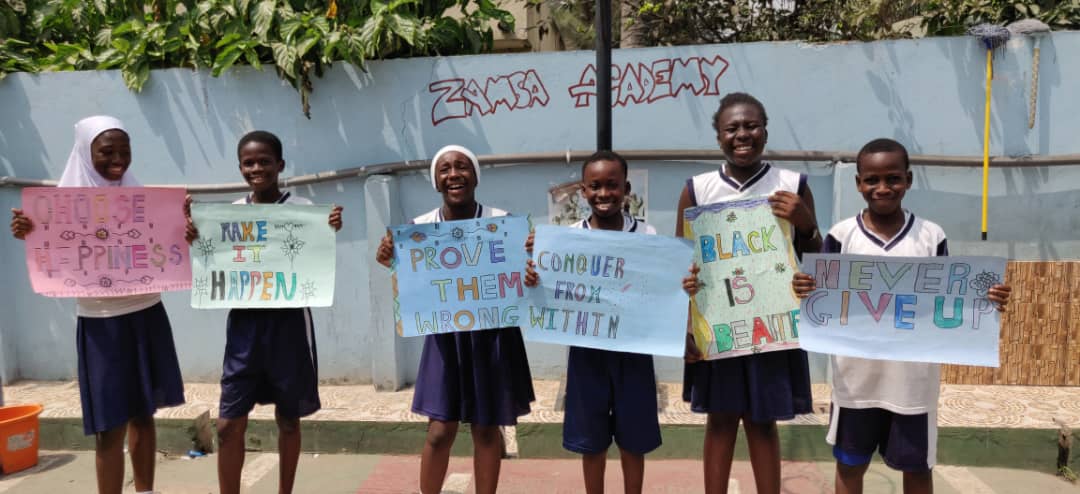 ZAMSA ACADEMY
CHOOSE
HAPPINESS
MAKE
IT
HAPPEN
PROVE
THEM
WRONG
CONQUER
FROM
WITHIN
BLACK
IS
BEAUTIF
NEVER
GIVE UP